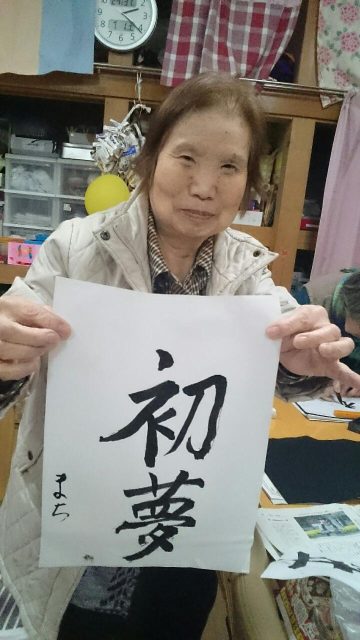 初夢
まち